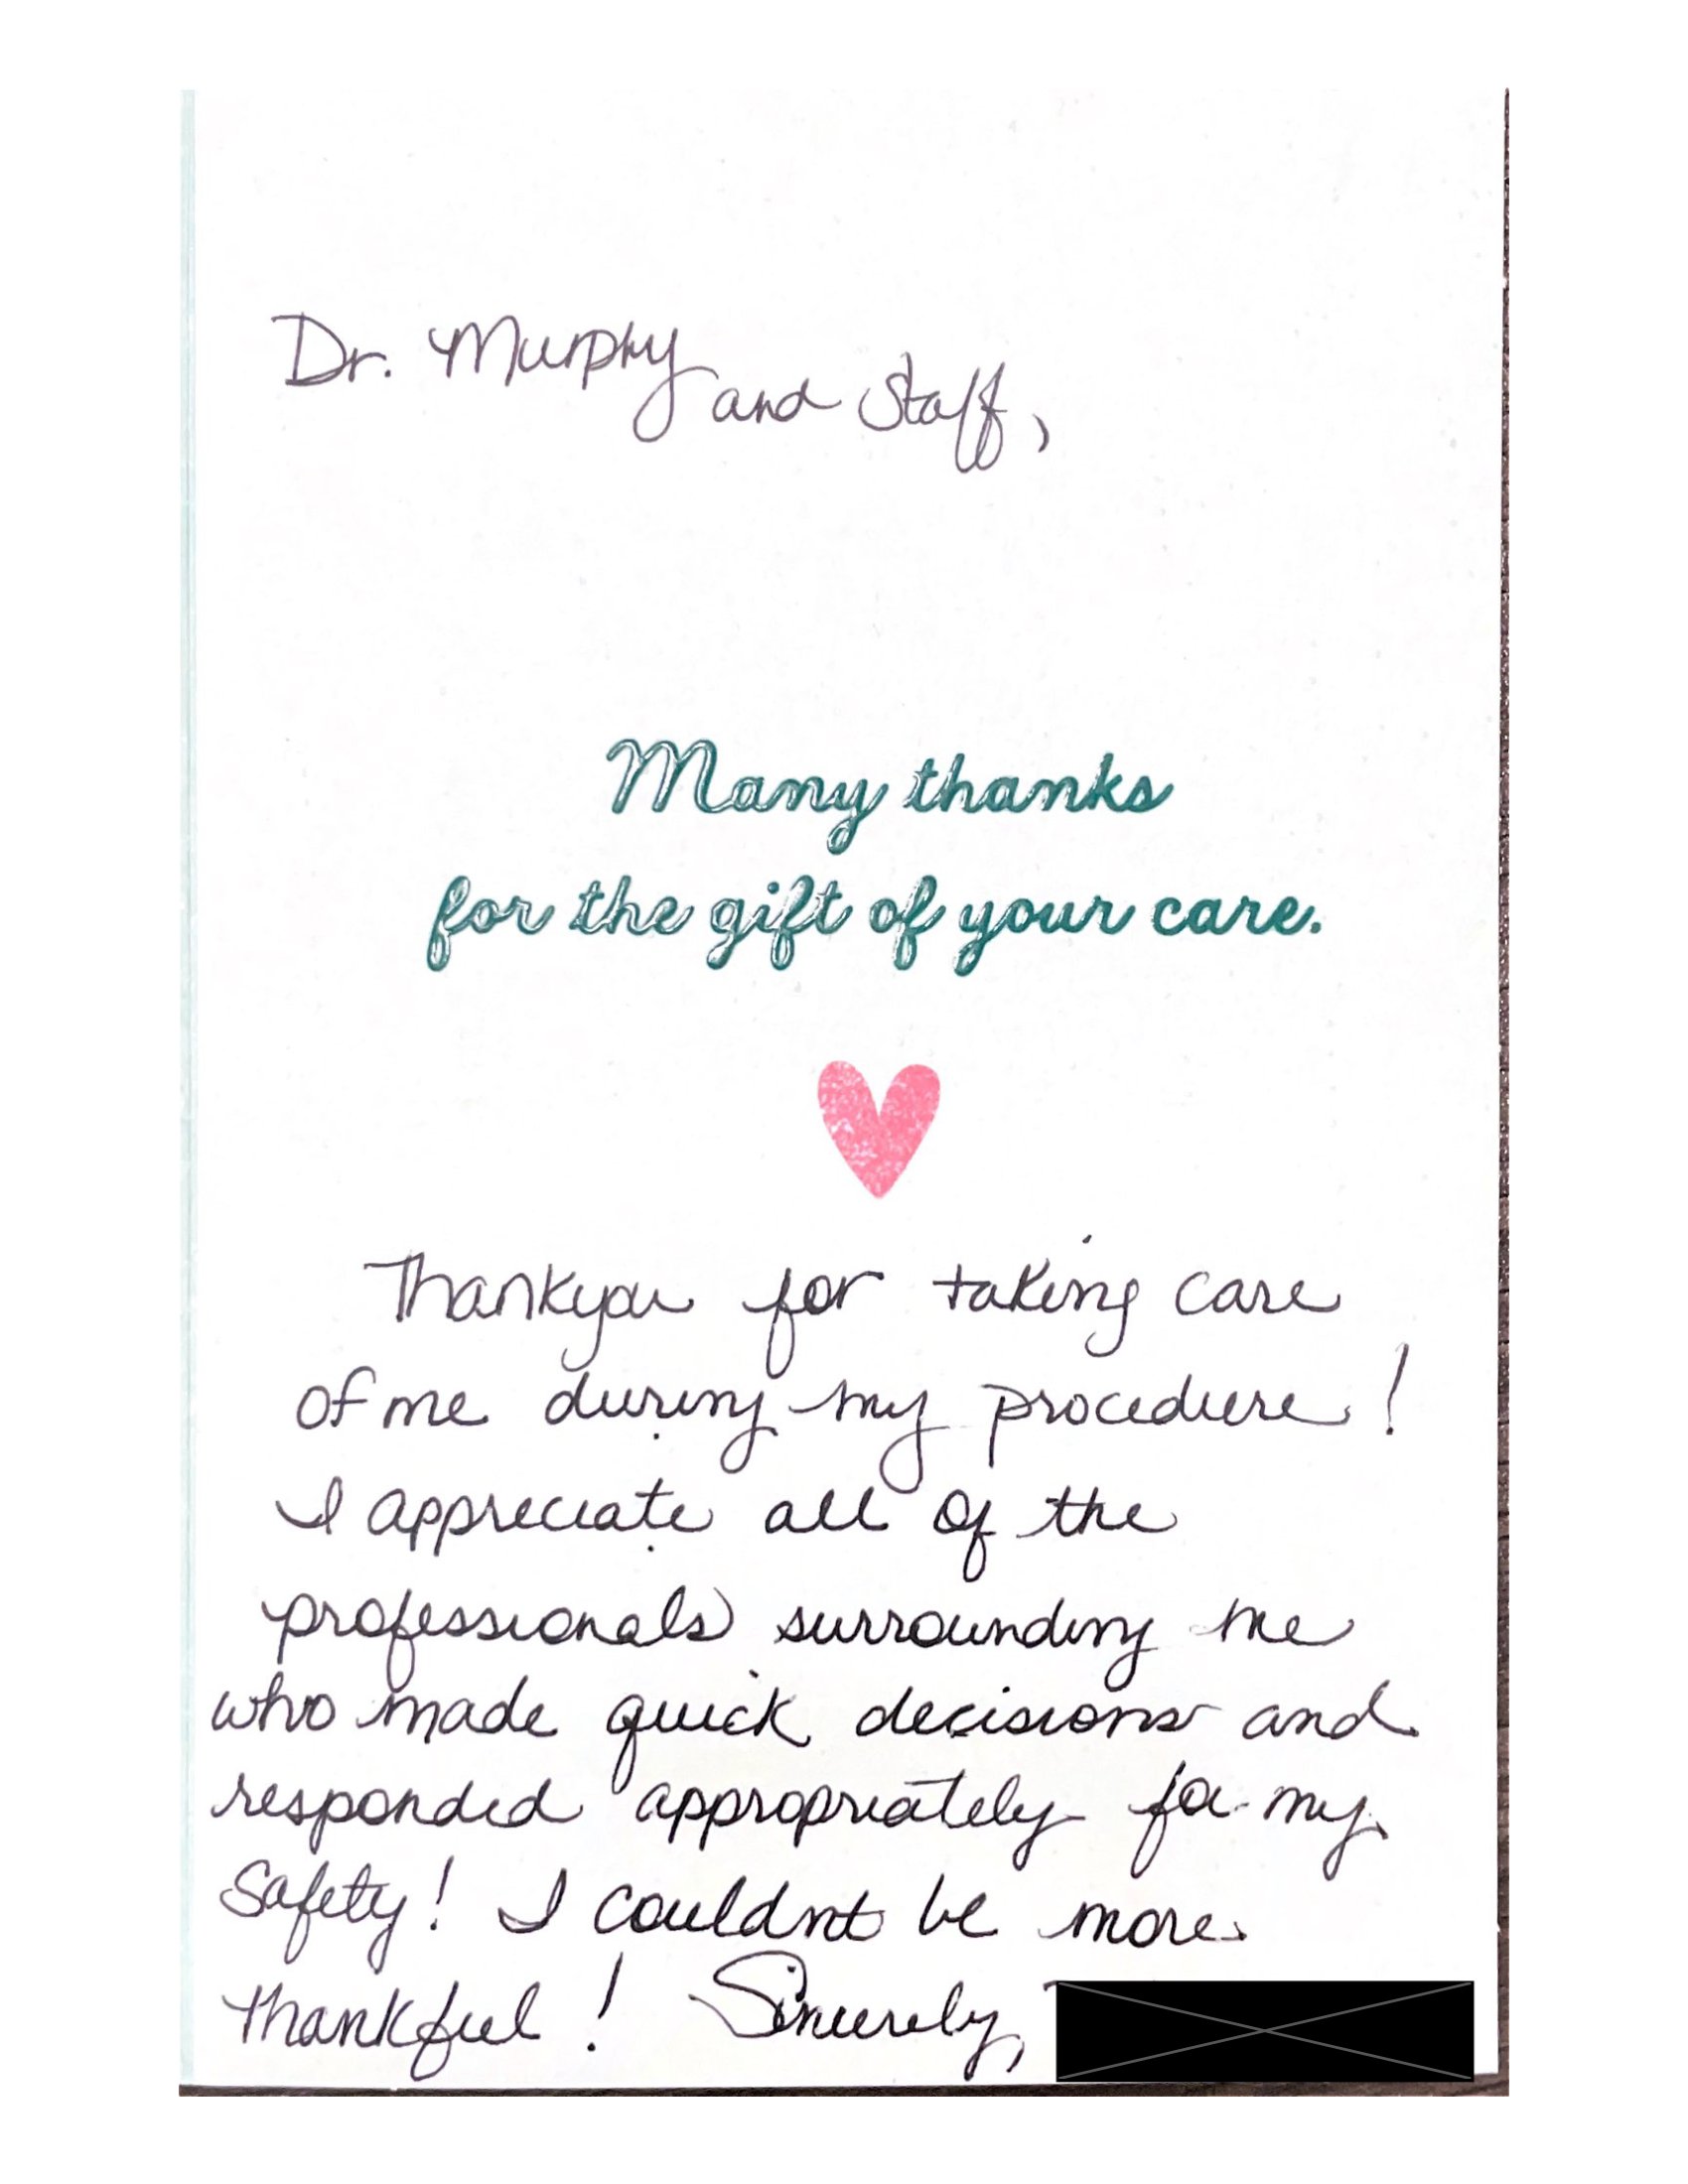 Dr. Murphy and Staff,
Many thanks
for the gift of your care.
Thankyou for taking care
of me during my procedure!
I appreciate all of the
professionals surrounding me
who made quick decisions and
responded appropriately for my
safety! I couldnt be more
thankful! Sincerely,